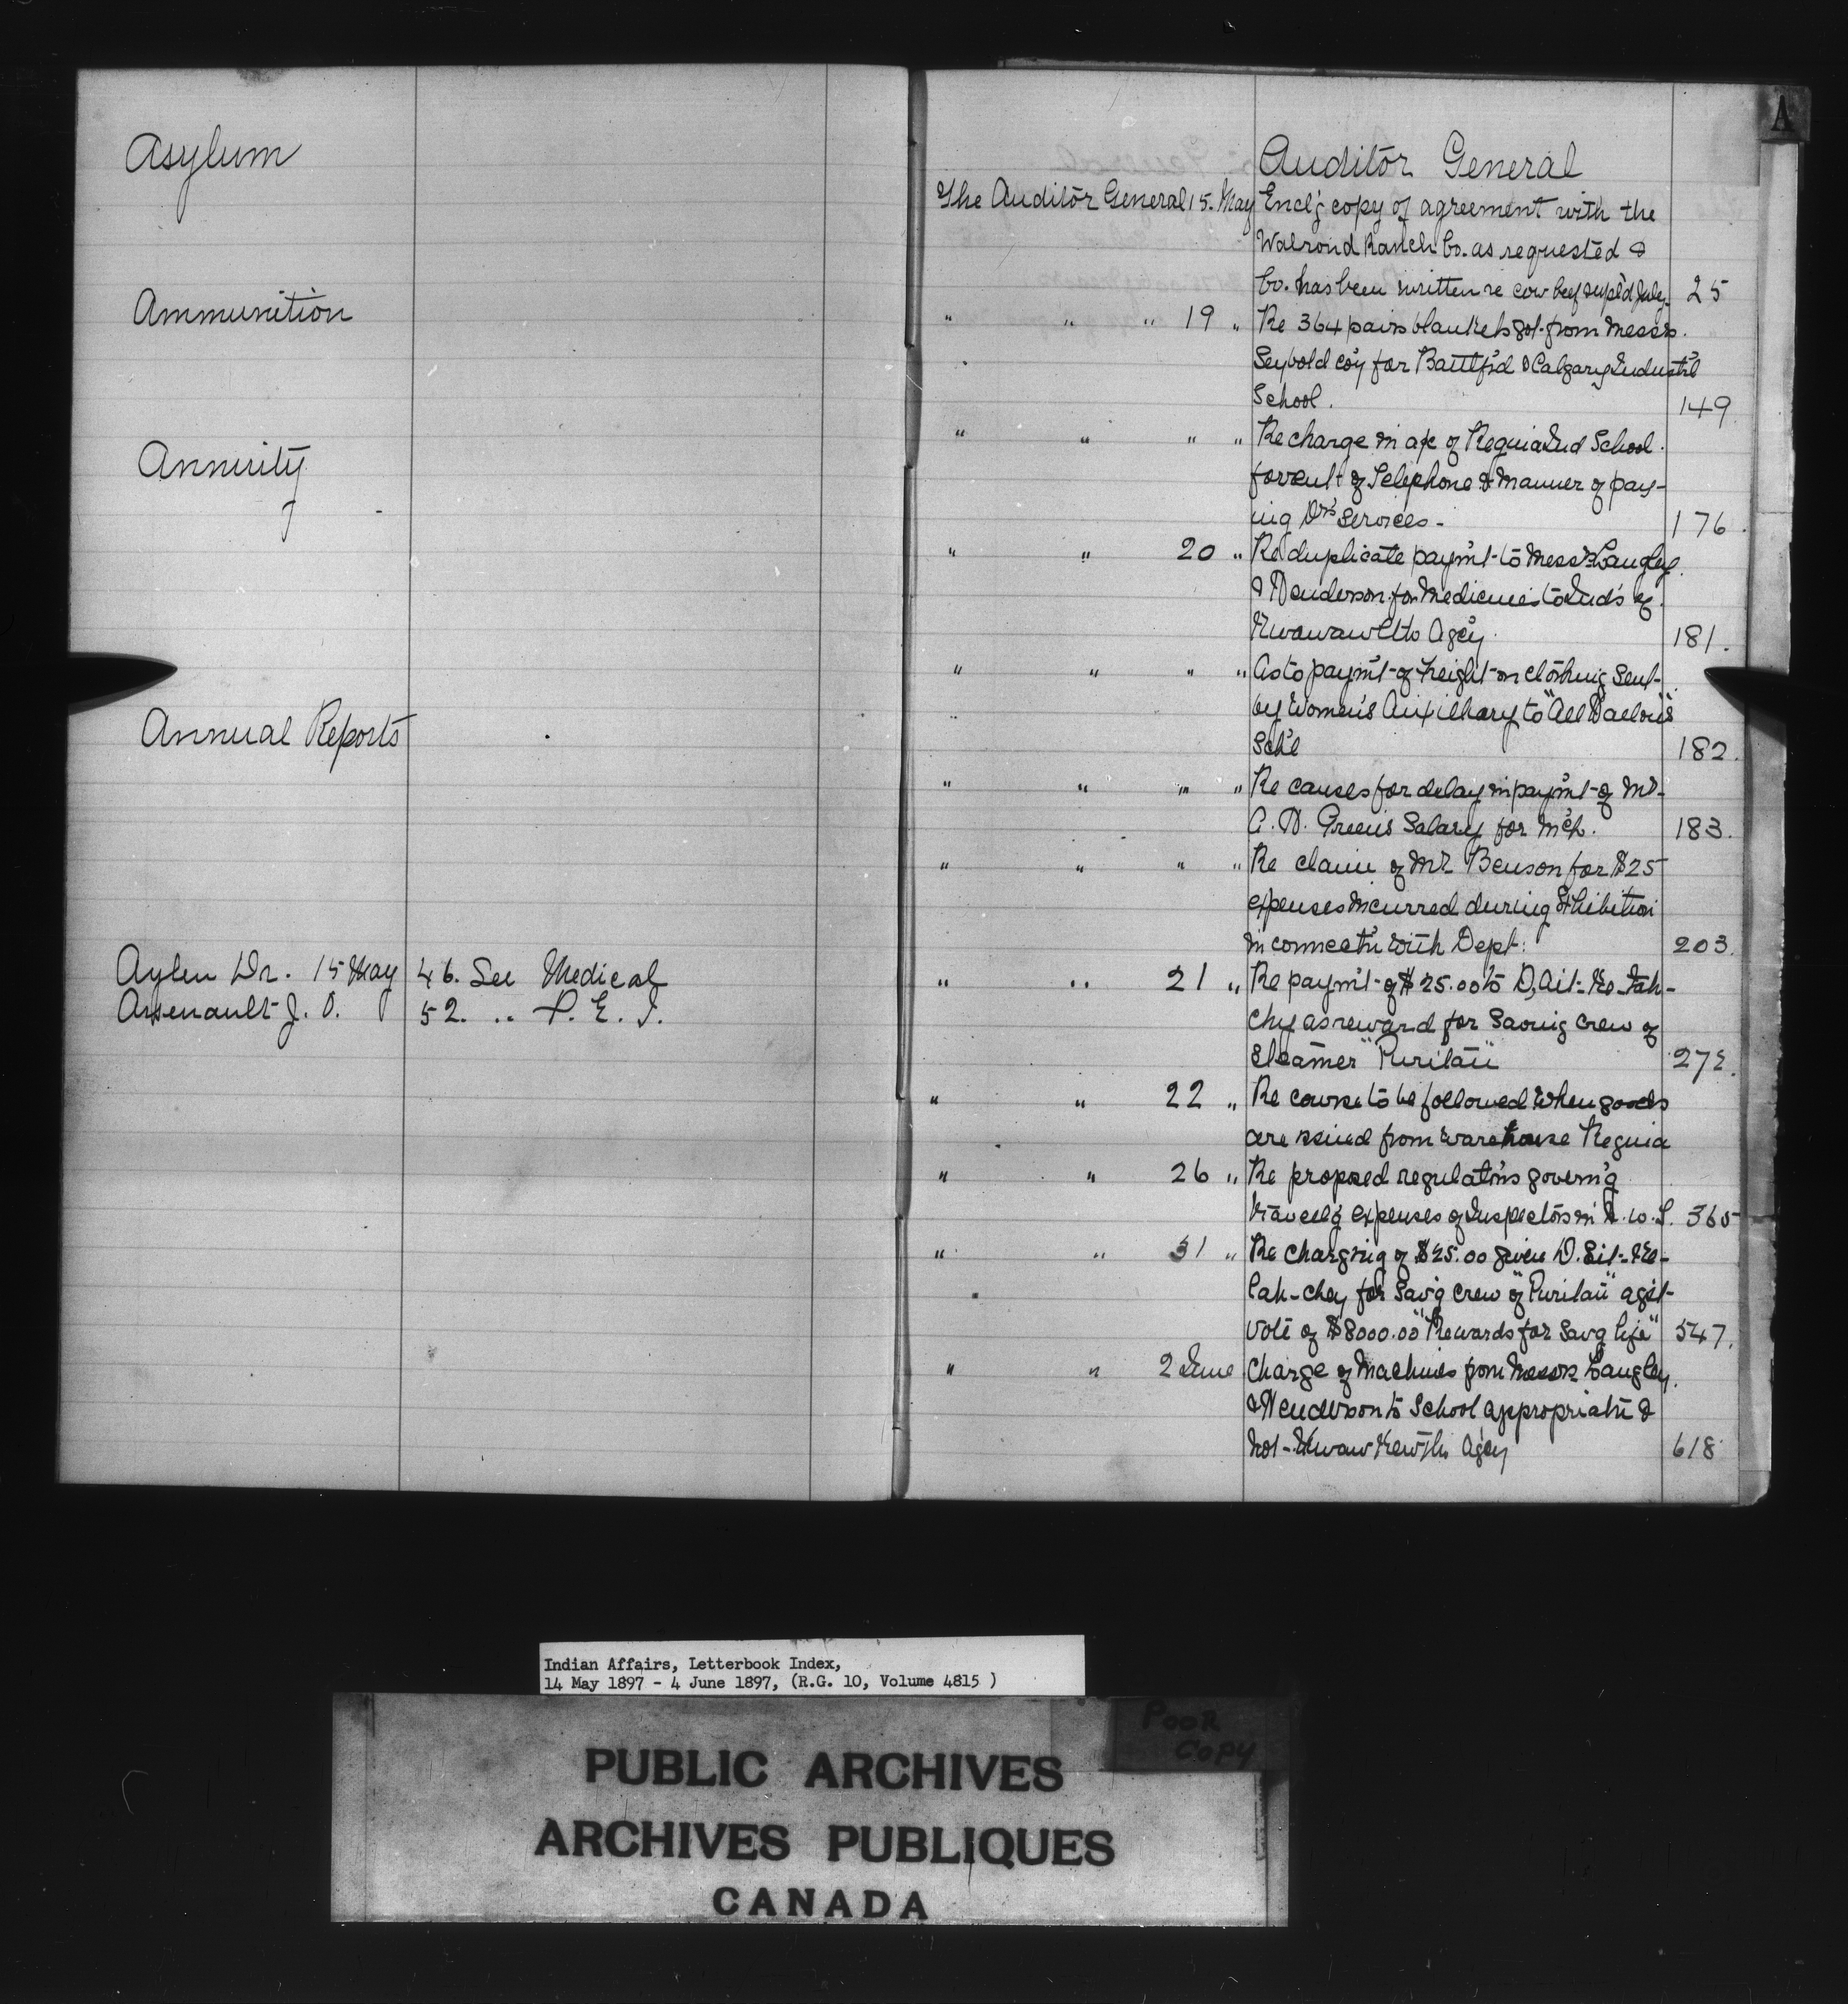 Asylum
Ammunition
Annuity
Annual Reports
Aylen Dr. 15 May 46. See Medical
Arsenault J. O. 52. " P. E. I.
A
Auditor General
The Auditor General 15. May Encl'g copy of agreement with the
Walrond Ranch Co. as requested &
Co. has been written re cow beef supl'd July. 25
" " " 19 " Re 364 pairs blankets got from Messrs.
Seybold co'y for Battlf'd & Calgary Industr'l
School. 149
" " " " Re charge in a/c of Regina Ind School.
for rent of Telephone & manner of pay-
ing Drs services - 176.
" " 20 " Re duplicate paym't to Messrs Langley
& Henderson for Medicines to Ind's of
Agcy. 181.
" " " " As to paym't of freight on clothing sent
by Women's Auxilliary to "All
Sch'l 182.
" " " " Re causes for delay in paym't of Mr
A. H. Green's Salary for M'ch. 183.
" " " " Re claim of Mr Benson for $25
expenses incurred during Exhibition
in connect'n with Dept: 203.
" " 21 " Re paym't of $25.00 to D,
chy as reward for Saving Crew of
Steamer "Puritan" 272.
" " 22 " Re course to be followed when goods
are issued from warehouse Regina
" " 26 " Re proposed regulat'ns govern'g
travell'g expenses of Inspectors in N. W. T. 365
" " 31 " Re charging of $25.00 given D.
chey for Sav'g Crew of "Puritan" ag'st
vote of $8000.00 "Rewards for Sav'g life" 547.
" " 2 June Charge of Machines from Messrs Langley
& Henderson to School appropriat'n &
not Agcy 618
Indian Affairs, Letterbook Index,
14 May 1897 - 4 June 1897, (R.G. 10, Volume 4815 )
POOR
COPY
PUBLIC ARCHIVES
ARCHIVES PUBLIQUES
CANADA